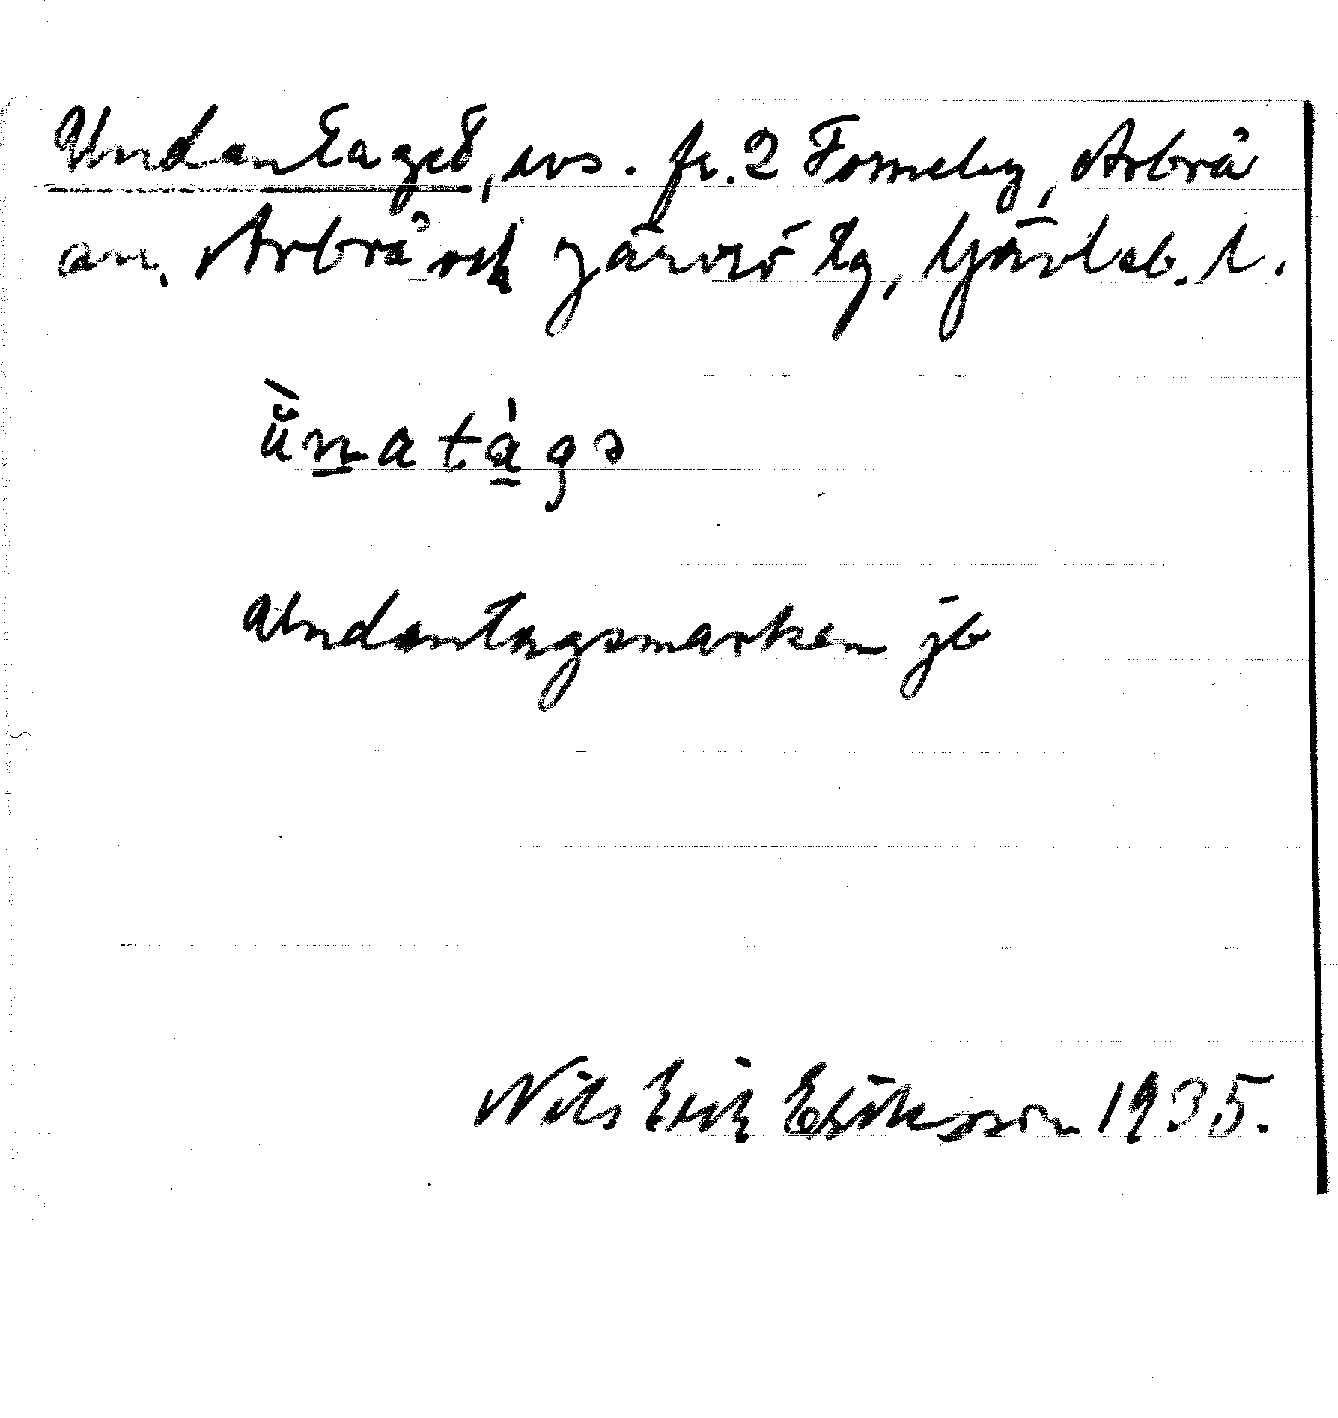 Undantaget, avs. fr. 2 Forneby, Arbrå
sn, Arbrå och Järvsö tg, Gävleb. l.
ùnatágə
Undantagsmarken jb
Nils Erik Eriksson 1935.